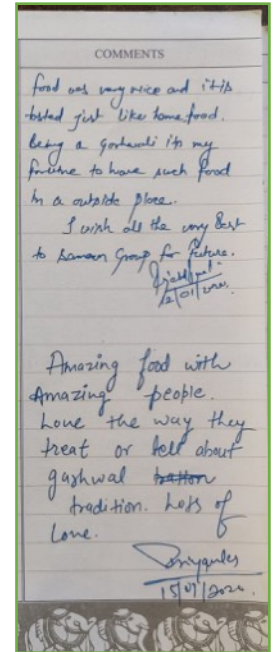 COMMENTS
food was very nice and it is
tasted just like home food.
Being a garhwali its my
fortune to have such food
in a outside place.
I wish all the very Best
to Group for Future.
Amazing food with
Amazing people.
Love the way they
treat or tell about
gashwal
tradition. Lots of
Love.
Priyanka
15/01/2024.